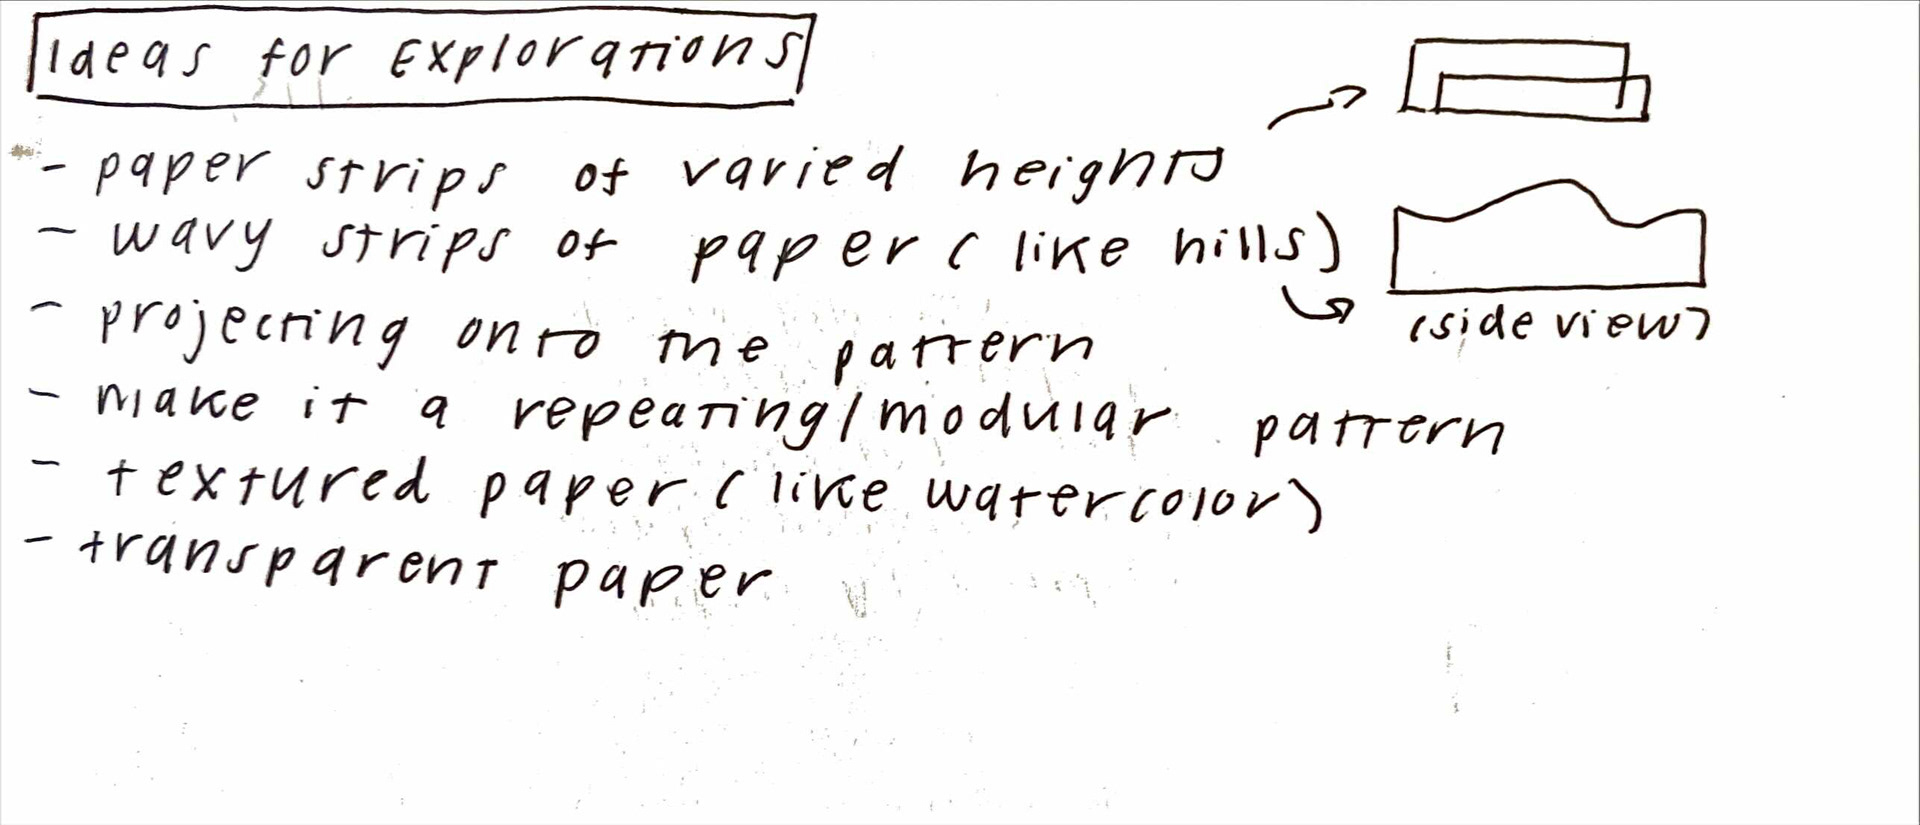 Ideas for Explorations
- paper strips of varied heights
- wavy strips of paper (like hills)
(side view)
- projecting onto the pattern
- make it a repeating/modular pattern
- textured paper (like watercolor)
- transparent paper